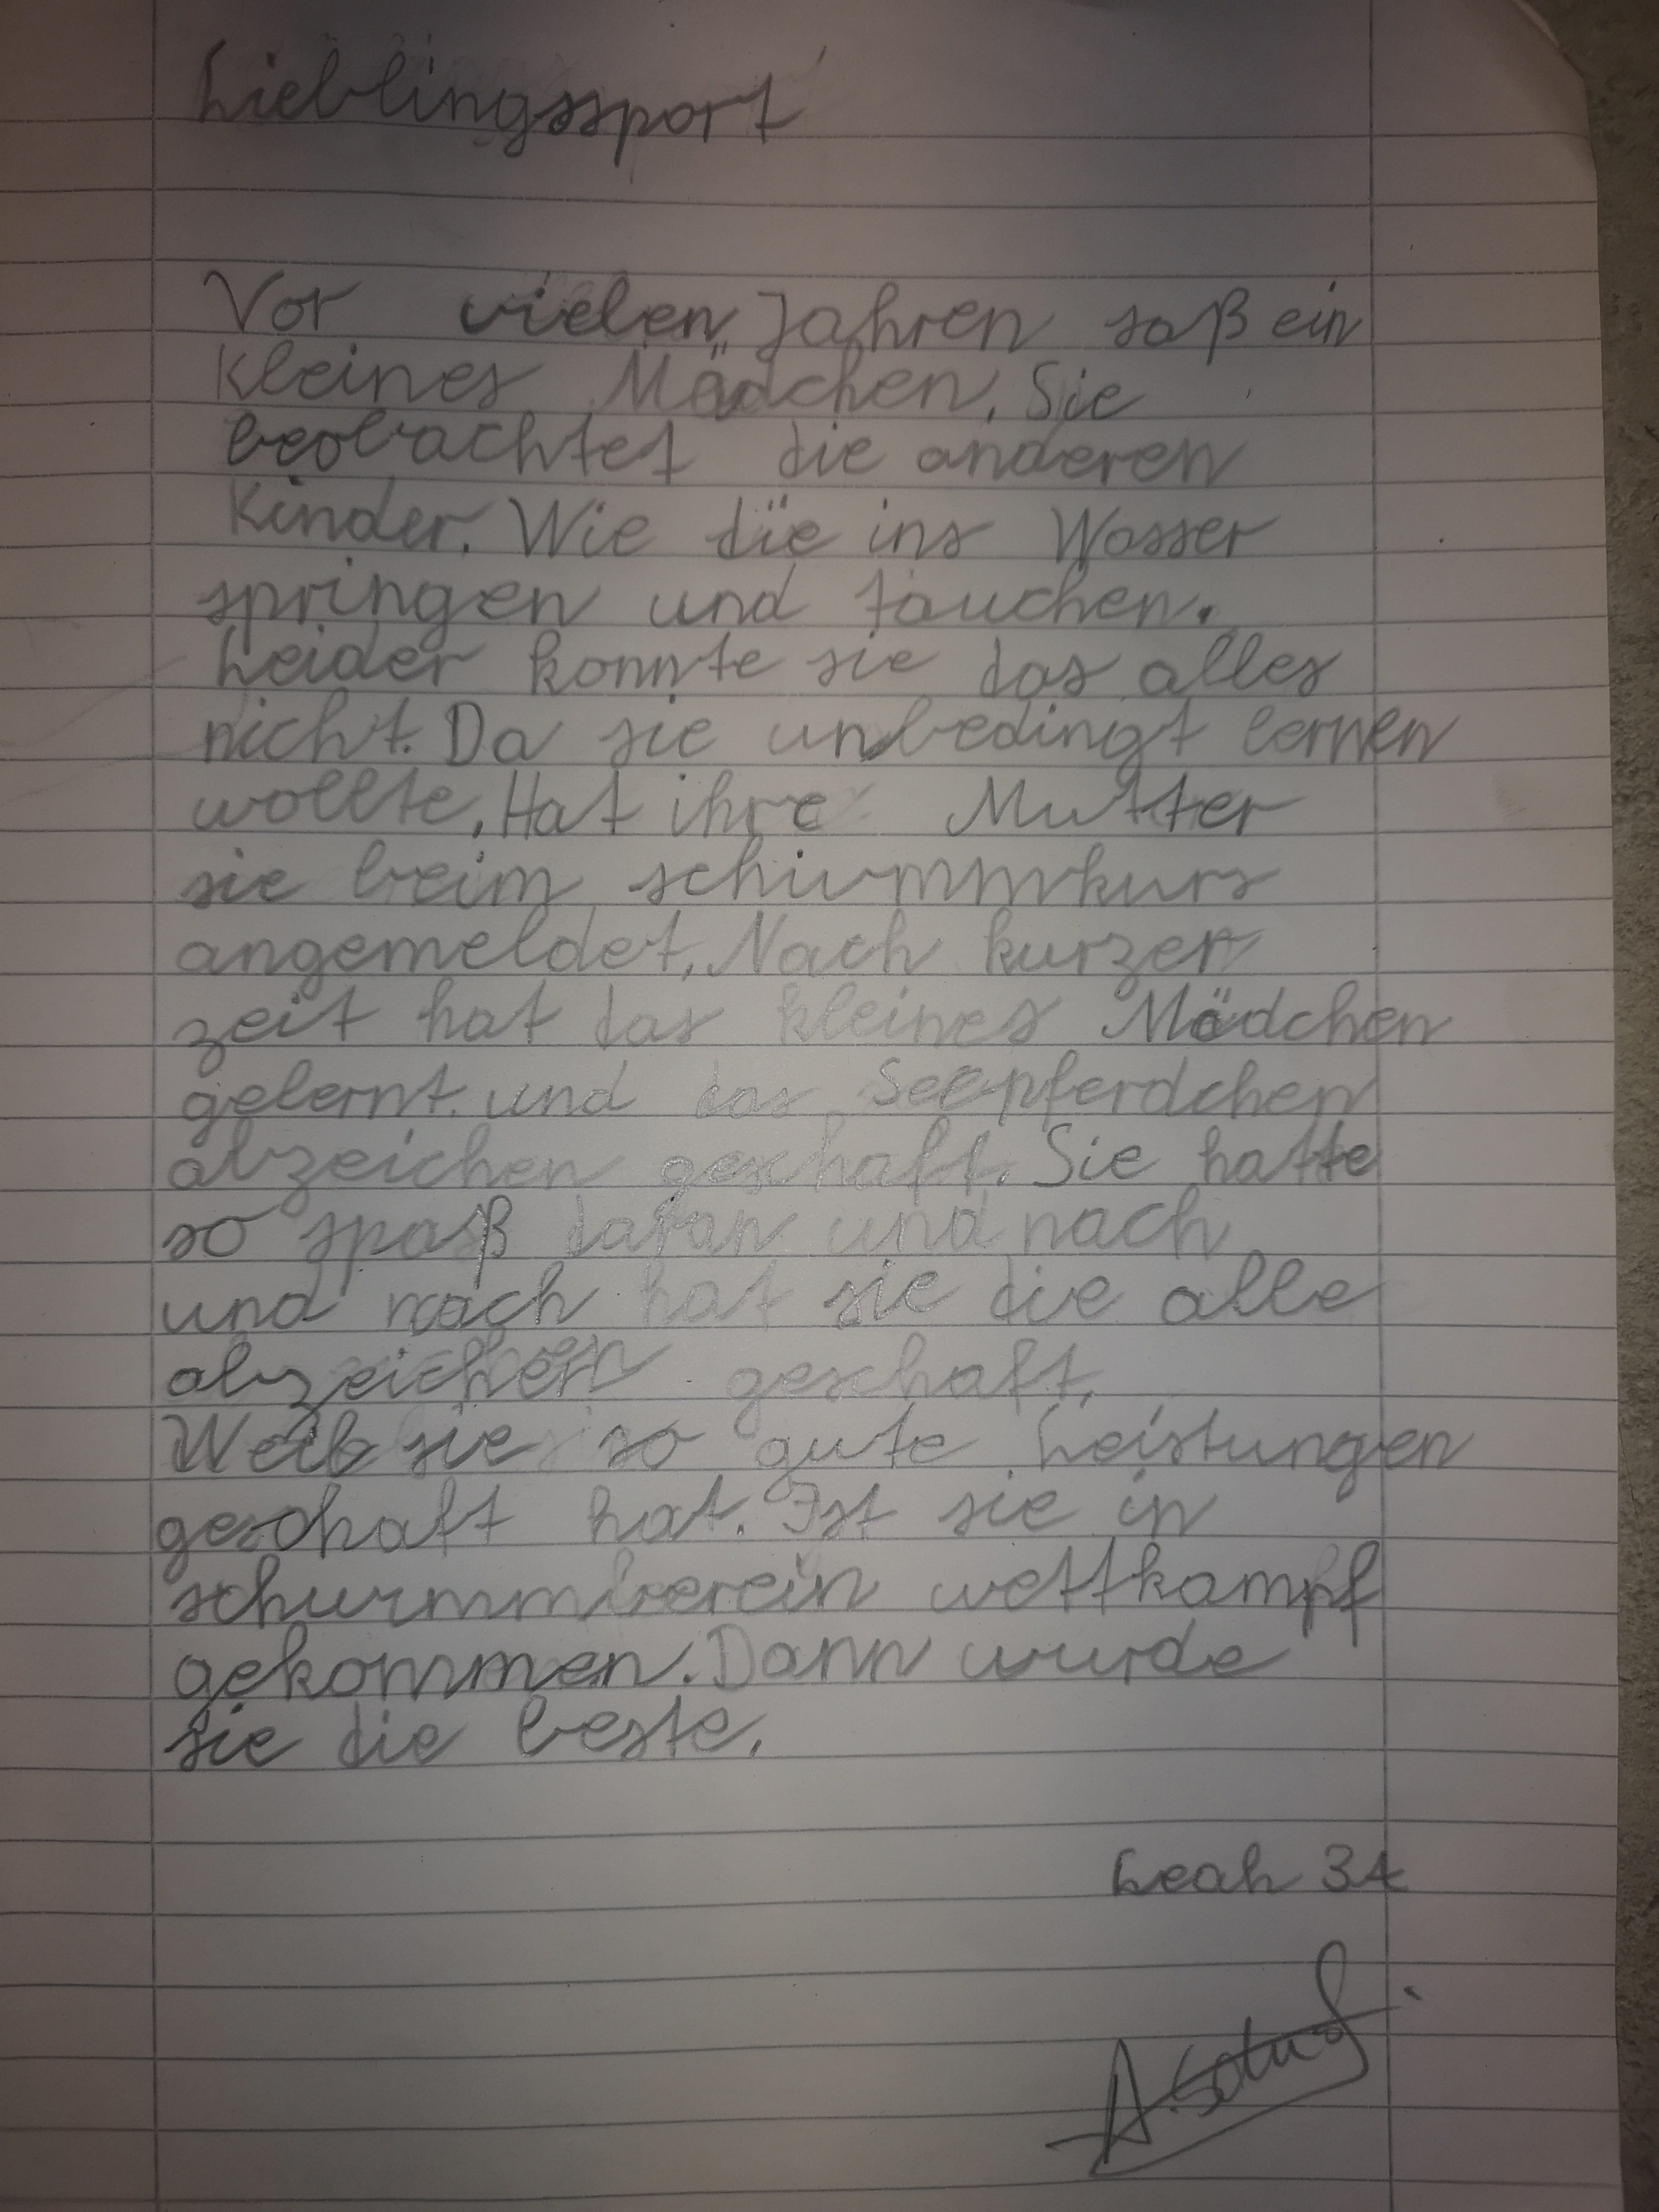 Lieblingssport
Vor vielen Jahren saß ein
kleines Mädchen. Sie
beobachtet die anderen
Kinder. Wie die ins Wasser
springen und tauchen.
Leider konnte sie das alles
nicht. Da sie unbedingt lernen
wollte. Hat ihre Mutter
sie beim schwimmkurs
angemeldet. Nach kurzer
zeit hat das kleines Mädchen
gelernt und das Seepferdchen
abzeichen geschaft. Sie hatte
so spaß daran und nach
und nach hat sie die alle
abzeichen geschaft.
Weil sie so gute Leistungen
geschaft hat. Ist sie in
schwimmverein wettkampf
gekommen. Dann wurde
sie die beste.
Leah 3A